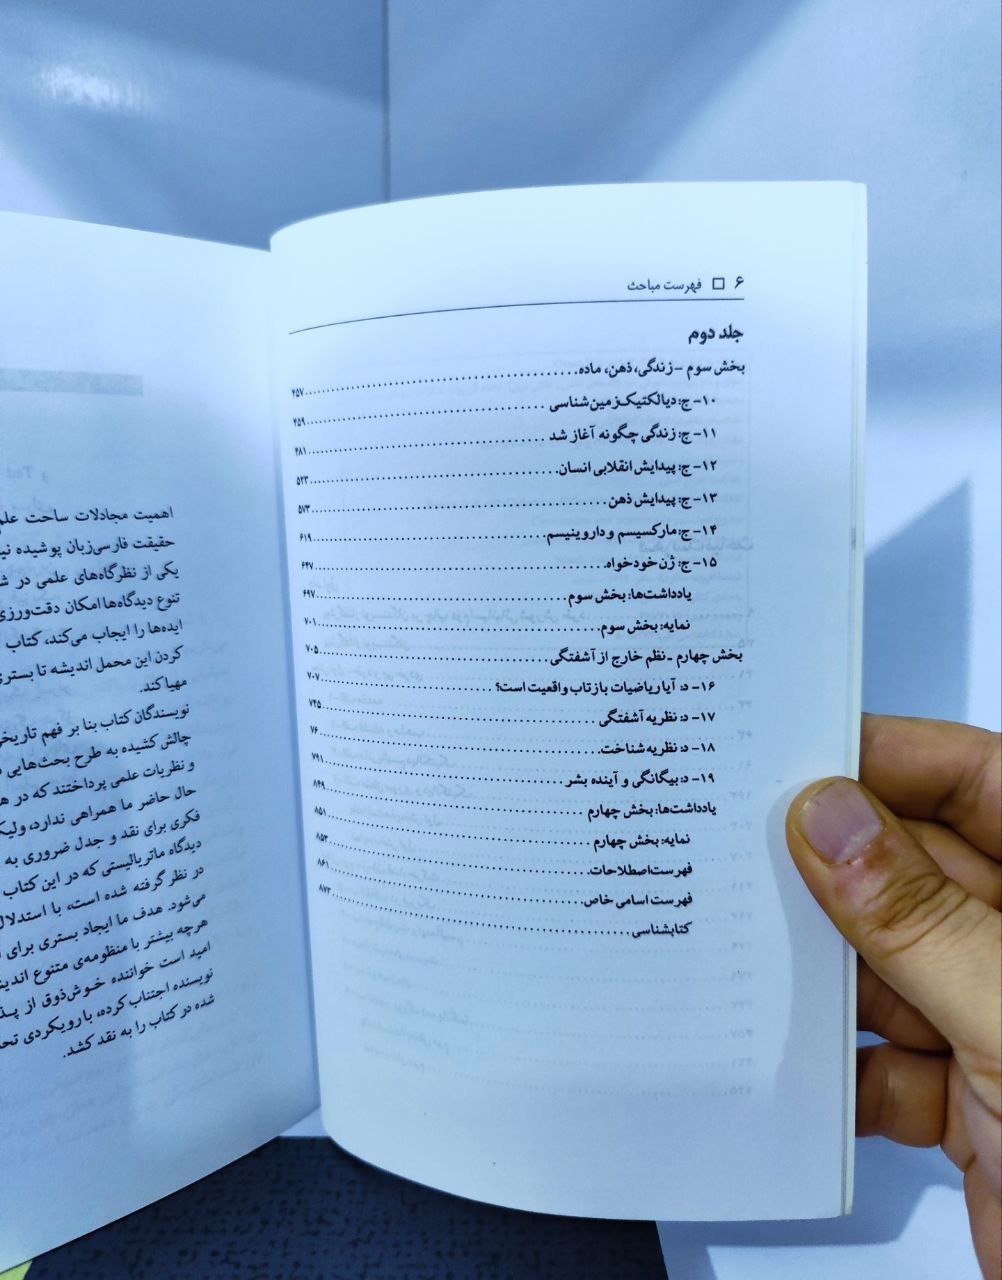 ۶ □ فهرست مباحث
جلد دوم
بخش سوم - زندگی، ذهن، ماده ۴۵۷
۱۰- ج: دیالکتیک زمین‌شناسی ۴۵۹
۱۱- ج: زندگی چگونه آغاز شد ۴۸۱
۱۲- ج: پیدایش انقلابی انسان ۵۲۳
۱۳- ج: پیدایش ذهن ۵۷۳
۱۴- ج: مارکسیسم و داروینیسم ۶۱۹
۱۵- ج: ژن خودخواه ۶۴۷
یادداشت‌ها: بخش سوم ۶۹۷
نمایه: بخش سوم ۷۰۱
بخش چهارم - نظم خارج از آشفتگی ۷۰۵
۱۶- د: آیا ریاضیات بازتاب واقعیت است؟ ۷۰۷
۱۷- د: نظریه آشفتگی ۷۴۵
۱۸- د: نظریه شناخت ۷۶۰
۱۹- د: بیگانگی و آینده بشر ۷۹۱
یادداشت‌ها: بخش چهارم ۸۴۹
نمایه: بخش چهارم ۸۵۱
فهرست اصطلاحات ۸۵۳
فهرست اسامی خاص ۸۶۱
کتابشناسی ۸۷۳
اهمیت مجادلات ساحت
حقیقت فارسی‌زبان پوشیده
یکی از نظرگاه‌های علمی در
تنوع دیدگاه‌ها امکان دقت‌ورزی
ایده‌ها را ایجاب می‌کند، کتاب
کردن این محمل اندیشه تا بستری
مهیا کند.
نویسندگان کتاب بنا بر فهم
چالش کشیده به طرح بحث‌هایی
و نظریات علمی پرداختند که در
حال حاضر ما همراهی ندارد،
فکری برای نقد و جدل ضروری به
دیدگاه ماتریالیستی که در این کتاب
در نظر گرفته شده است، با
می‌شود. هدف ما ایجاد بستری برای
هرچه بیشتر با منظومه‌ی متنوع
امید است خواننده خوش‌ذوق از
نویسنده اجتناب کرده، با رویکردی
شده در کتاب را به نقد کشد.